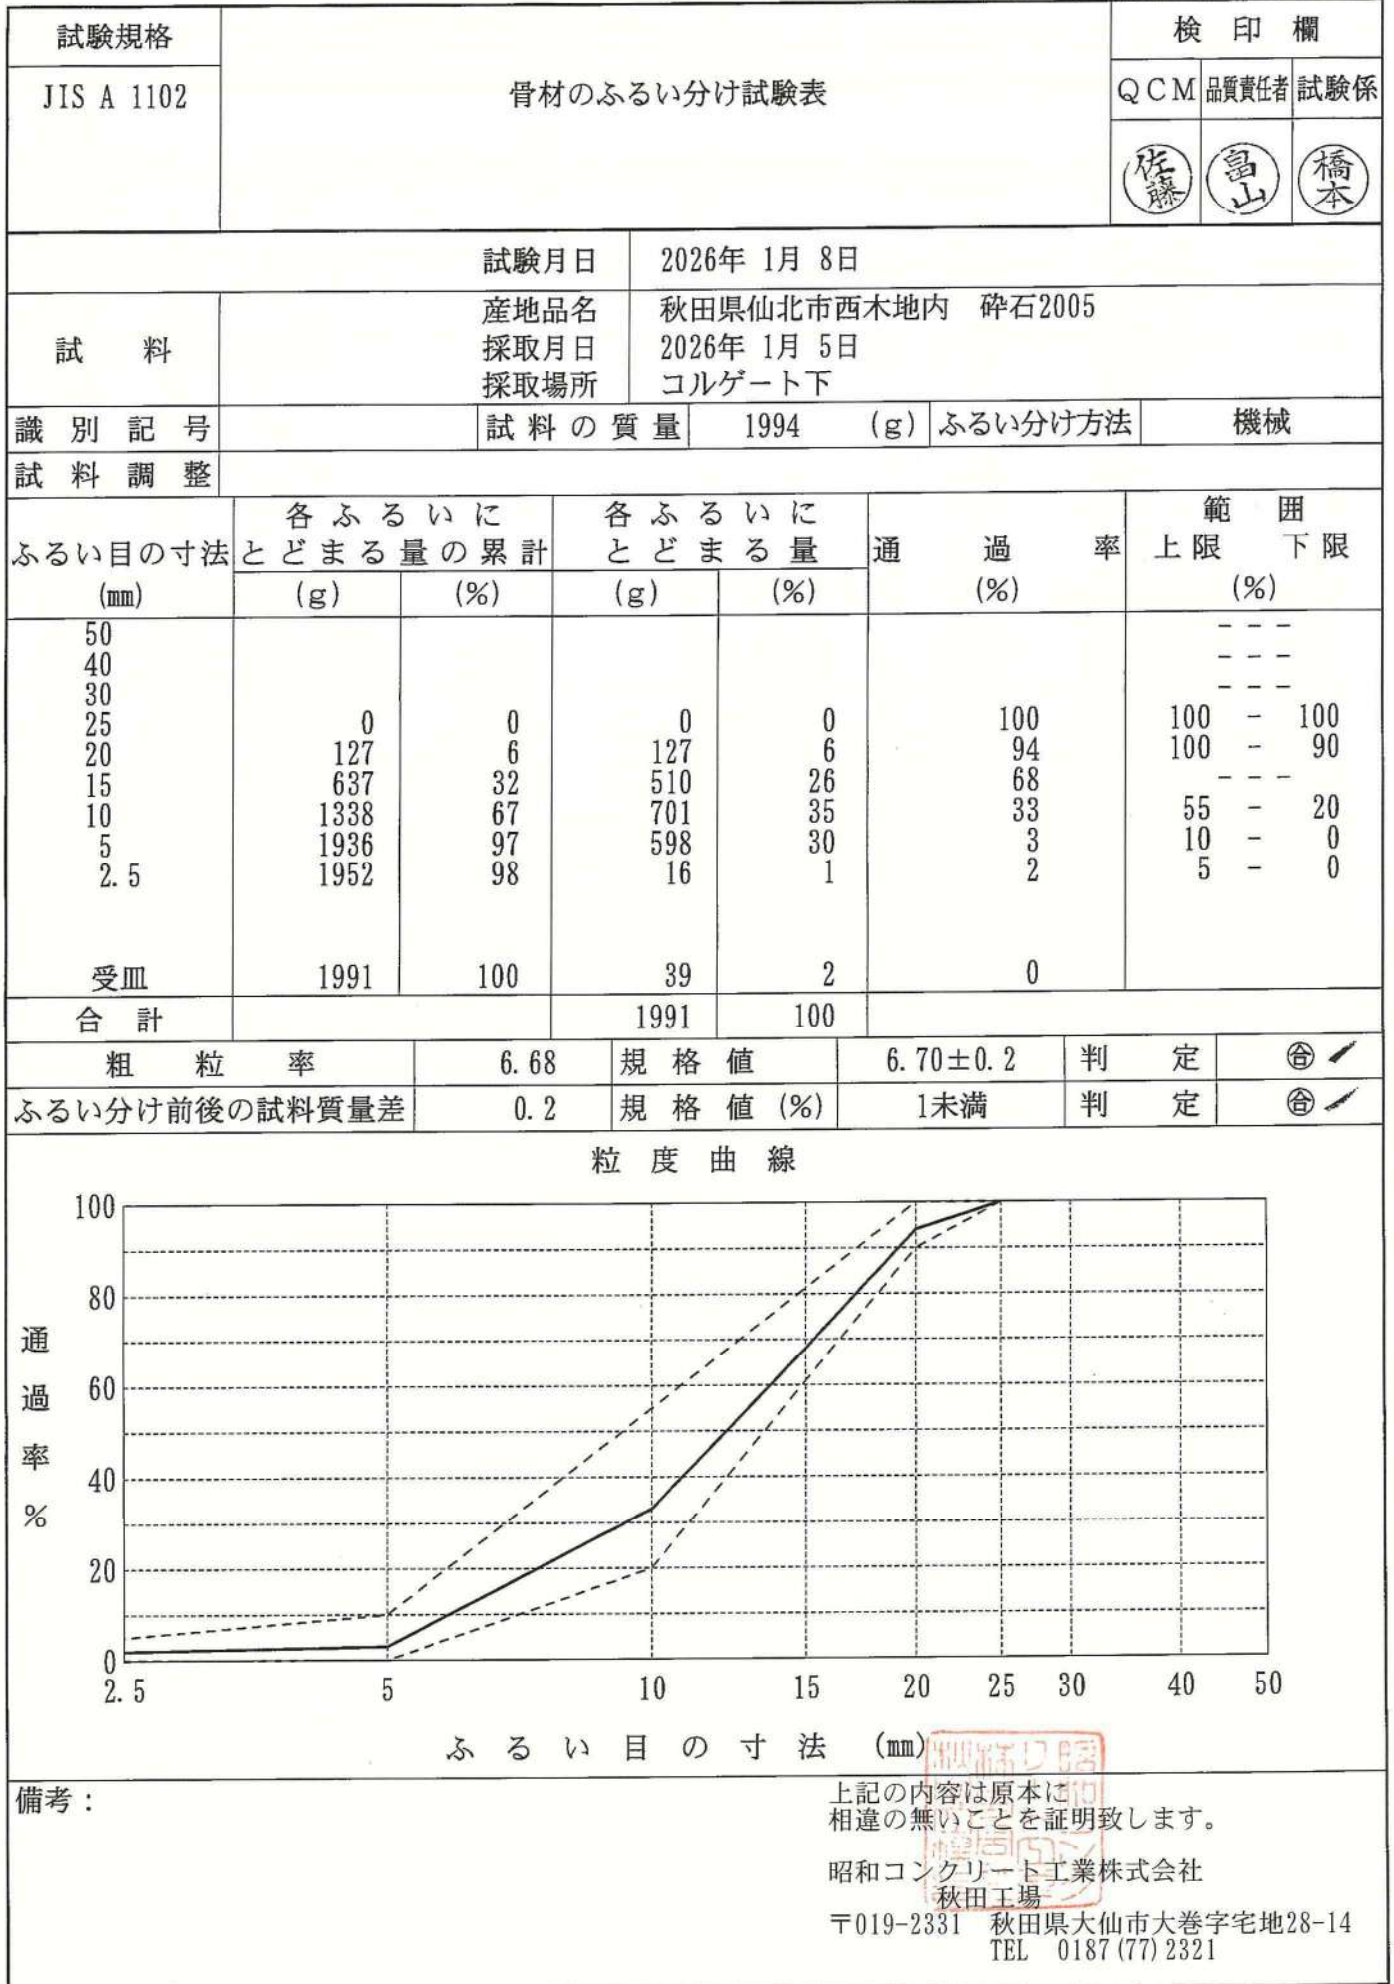 試験規格
JIS A 1102
骨材のふるい分け試験表
検 印 欄
QCM 品質責任者 試験係
佐藤 畠山 橋本
試験月日 2026年 1月 8日
試 料
産地品名 秋田県仙北市西木地内 砕石2005
採取月日 2026年 1月 5日
採取場所 コルゲート下
識 別 記 号 試 料 の 質 量 1994 (g) ふるい分け方法 機械
試 料 調 整
ふるい目の寸法 (mm)
各 ふ る い に と ど ま る 量 の 累 計 (g) (%)
各 ふ る い に と ど ま る 量 (g) (%)
通 過 率 (%)
範 囲 上限 下限 (%)
50 - - -
40 - - -
30 - - -
25 0 0 0 0 100 100 - 100
20 127 6 127 6 94 100 - 90
15 637 32 510 26 68 - - -
10 1338 67 701 35 33 55 - 20
5 1936 97 598 30 3 10 - 0
2.5 1952 98 16 1 2 5 - 0
受皿 1991 100 39 2 0
合 計 1991 100
粗 粒 率 6.68 規 格 値 6.70±0.2 判 定 合
ふるい分け前後の試料質量差 0.2 規 格 値 (%) 1未満 判 定 合
粒 度 曲 線
100
80
60
40
20
0
通過率%
2.5 5 10 15 20 25 30 40 50
ふ る い 目 の 寸 法 (mm)
備考：
上記の内容は原本に
相違の無いことを証明致します。
昭和コンクリート工業株式会社
秋田工場
〒019-2331 秋田県大仙市大巻字宅地28-14
TEL 0187(77)2321